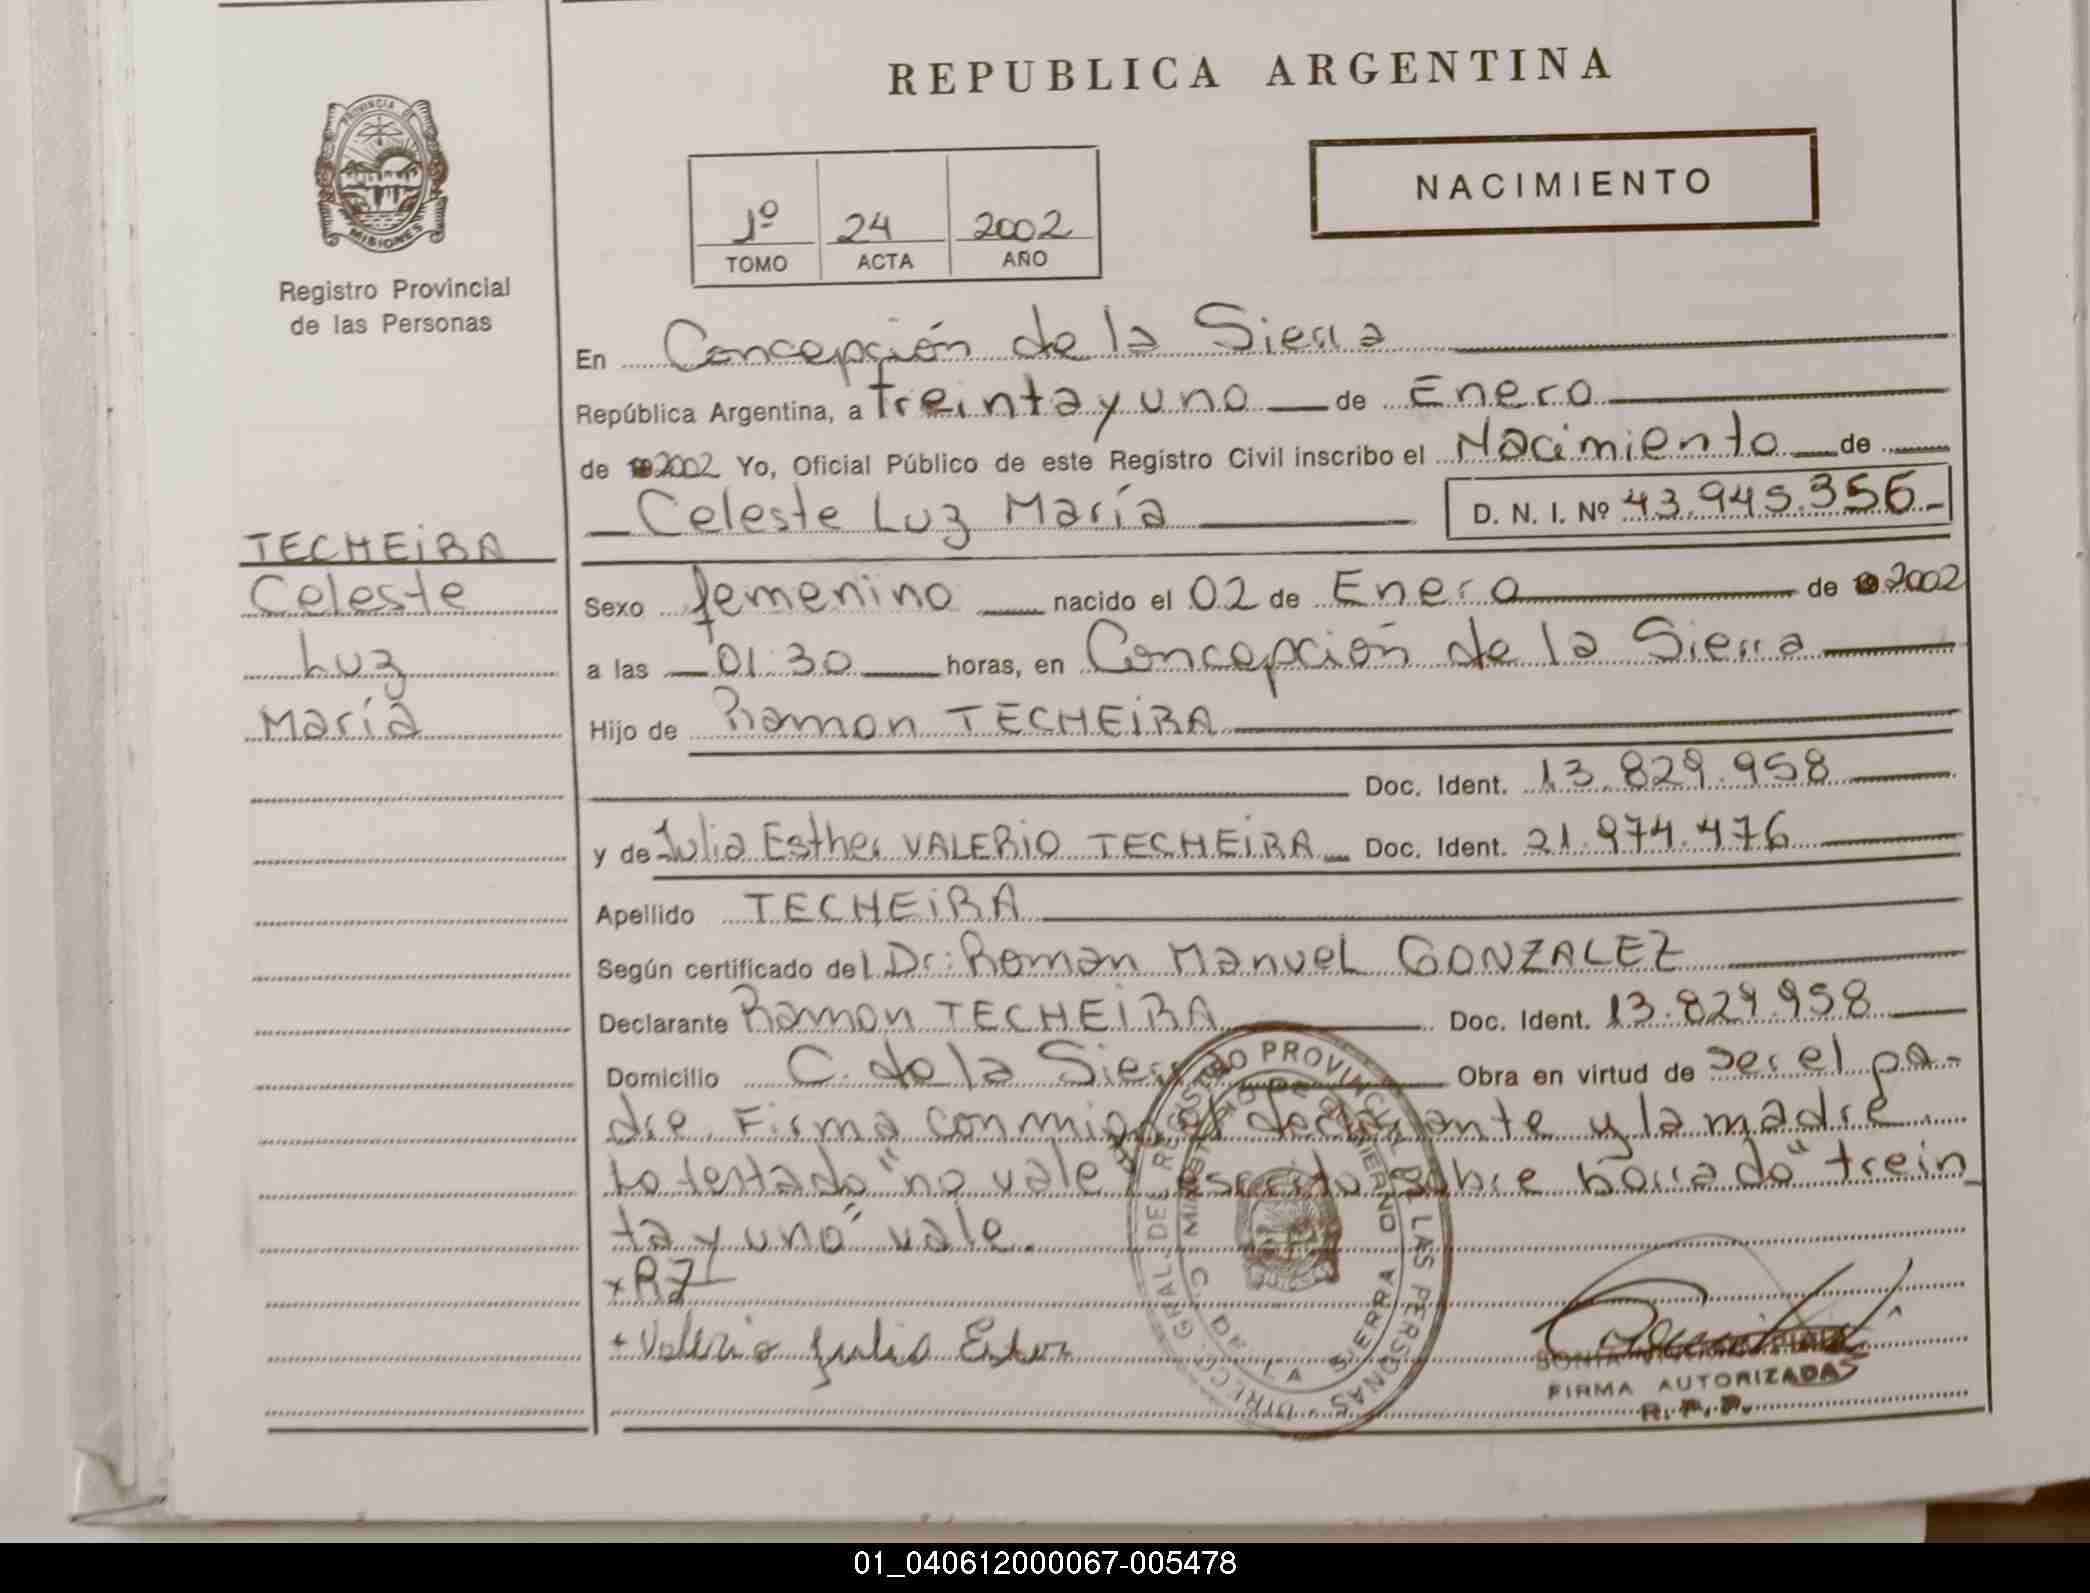 REPUBLICA ARGENTINA
PROVINCIA DE
MISIONES
Registro Provincial
de las Personas
NACIMIENTO
1º 24 2002
TOMO ACTA AÑO
En Concepción de la Sierra
República Argentina, a treinta y uno de Enero
de 2002 Yo, Oficial Público de este Registro Civil inscribo el Nacimiento de
Celeste Luz María D. N. I. Nº 43.945.356
TECHEiRA
Celeste
Luz
María
Sexo femenino nacido el 02 de Enero de 2002
a las 01:30 horas, en Concepción de la Sierra
Hijo de Ramon TECHEiRA
Doc. Ident. 13.829.958
y de Julia Esther VALERiO TECHEiRA Doc. Ident. 21.974.476
Apellido TECHEiRA
Según certificado del Dr: Roman Manuel GONZALEZ
Declarante Ramon TECHEiRA Doc. Ident. 13.829.958
Domicilio C. de la Sierra Obra en virtud de ser el pa-
dre. Firma conmigo el declarante y la madre
Lo testado "no vale" escrito sobre borrado "trein
ta y uno" vale.
x RZ
+ Valerio Julia Ester
DIRECC. GRAL. DEL REGISTRO PROVINCIAL DE LAS PERSONAS
MINISTERIO DE GOBIERNO
C. DE LA SIERRA
SONIA
FIRMA AUTORIZADAS
R. P. P.
01_040612000067-005478